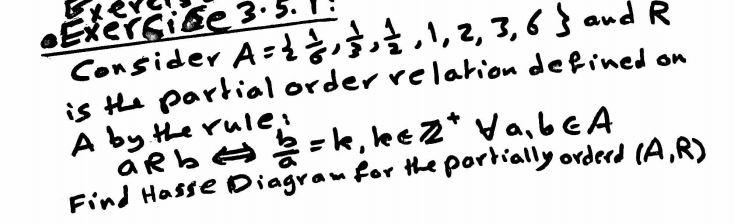 Exercise 3.5.1:
Consider A = { 1/6, 1/3, 1/2, 1, 2, 3, 6 } and R
is the partial order relation defined on
A by the rule:
aRb ⇔ b/a = k, k∈Z⁺ ∀a,b∈A
Find Hasse Diagram for the partially orderd (A,R)